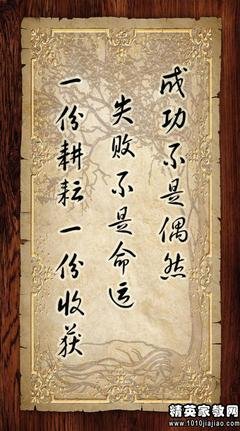 成功不是偶然
失败不是命运
一份耕耘一份收获
精英家教网
www.1010jiajiao.com